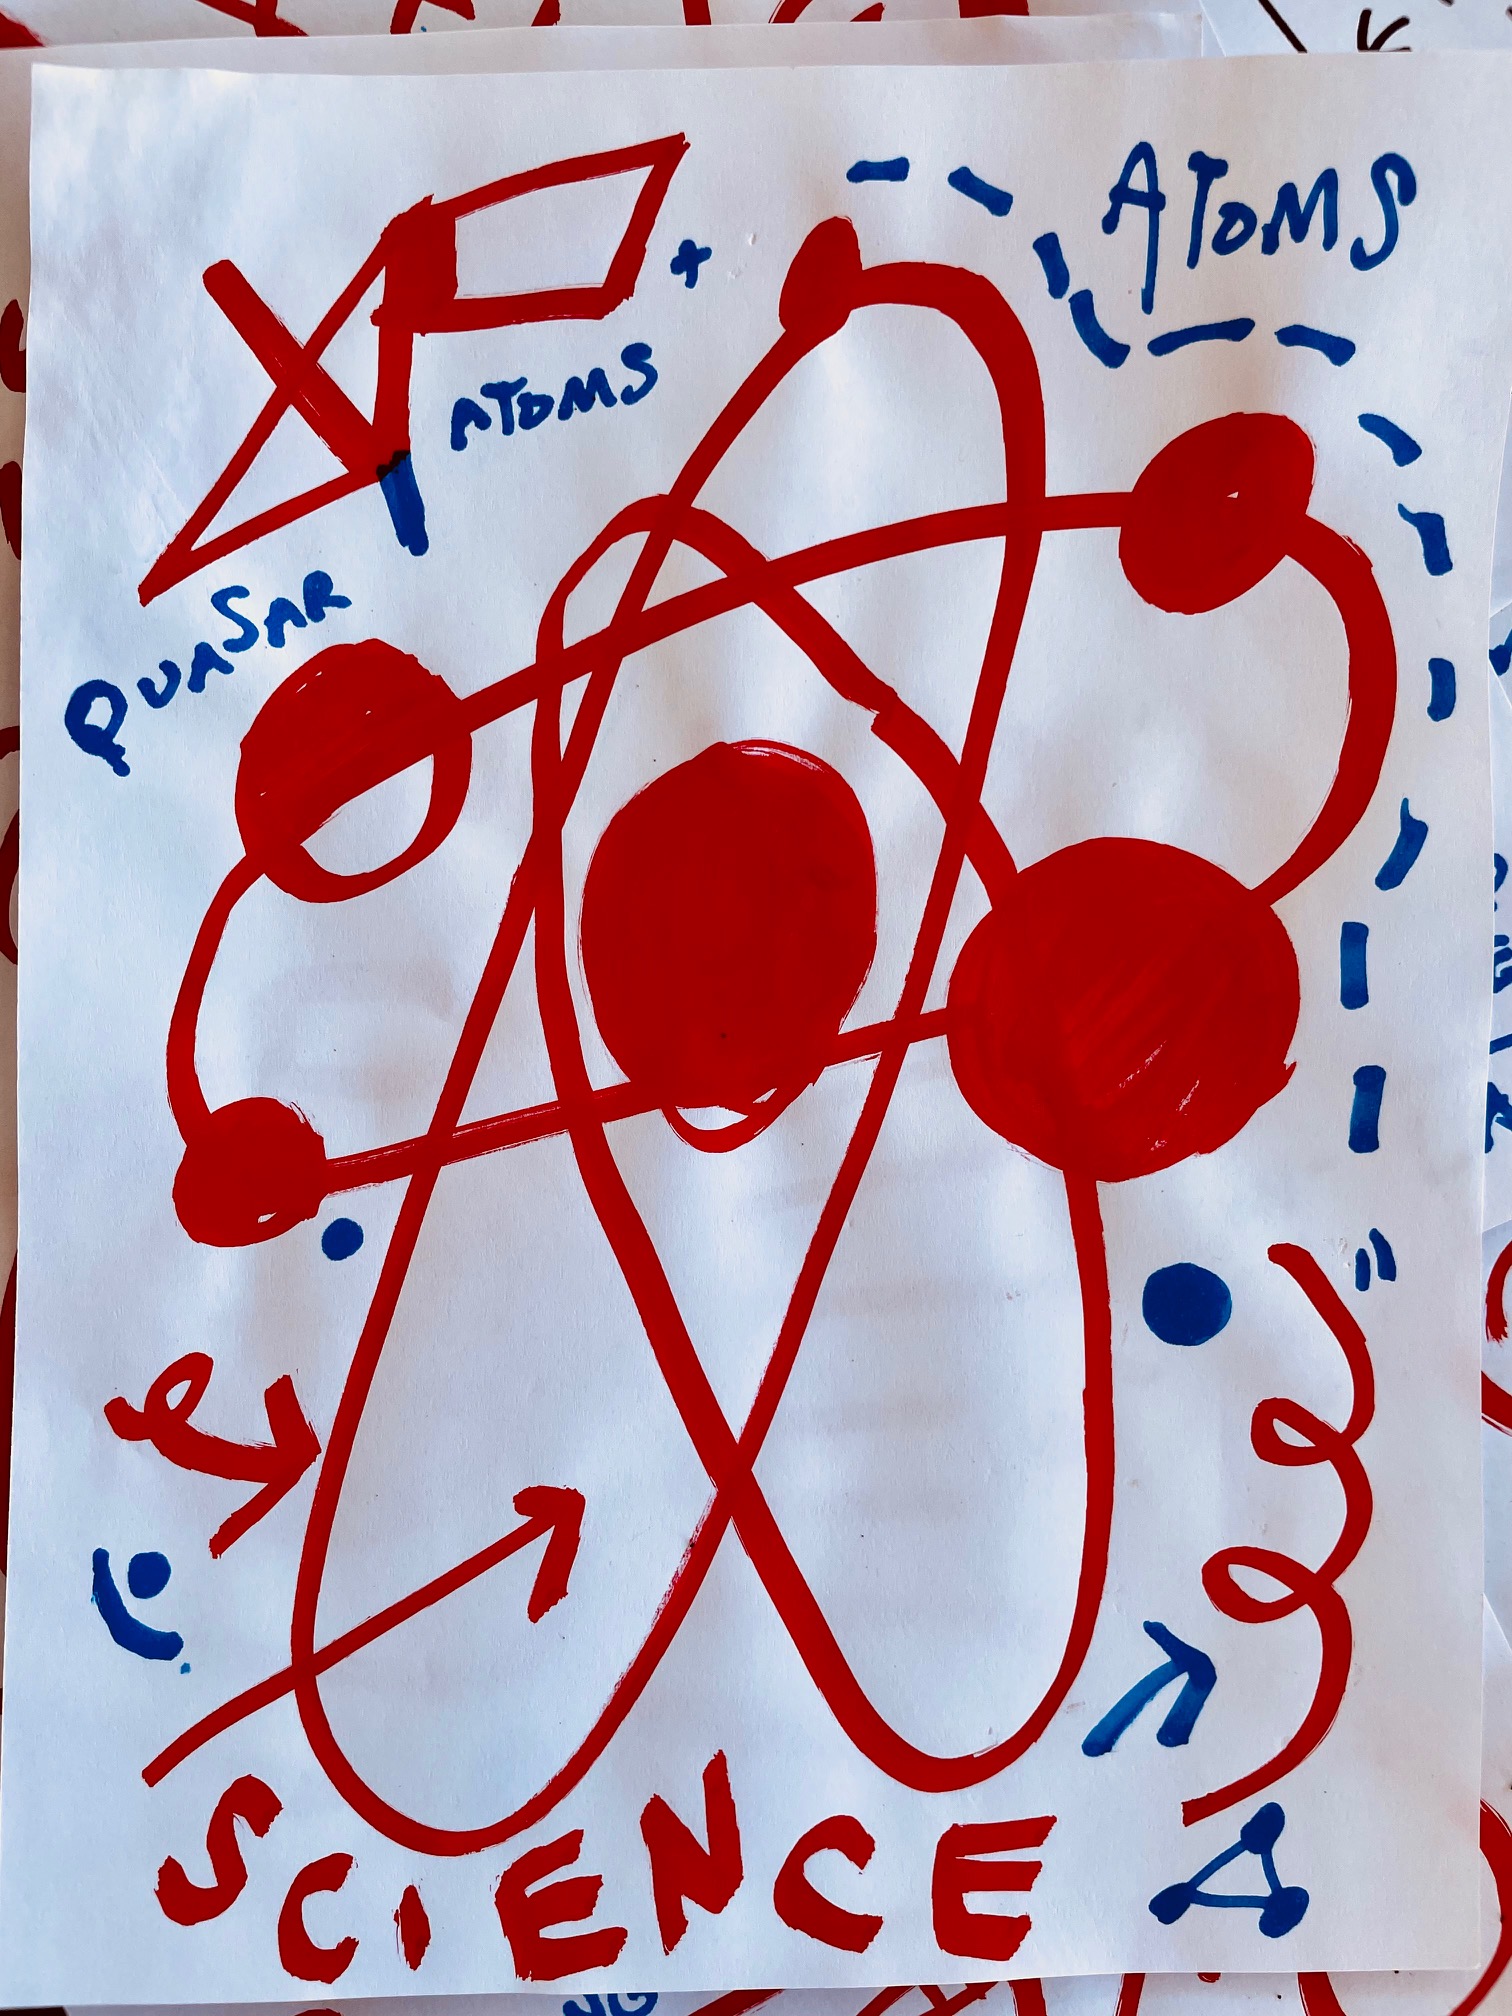 ATOMS
ATOMS
QUASAR
SCIENCE
NG